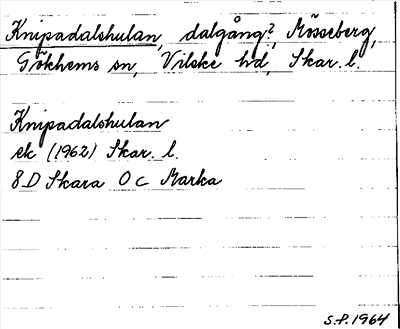 Knipadalshulan, dalgång?, Mösseberg,
Gökhems sn, Vilske hd, Skar. l.
Knipadalshulan
ek (1962) Skar. l.
8D Skara 0 c Marka
S.P. 1964